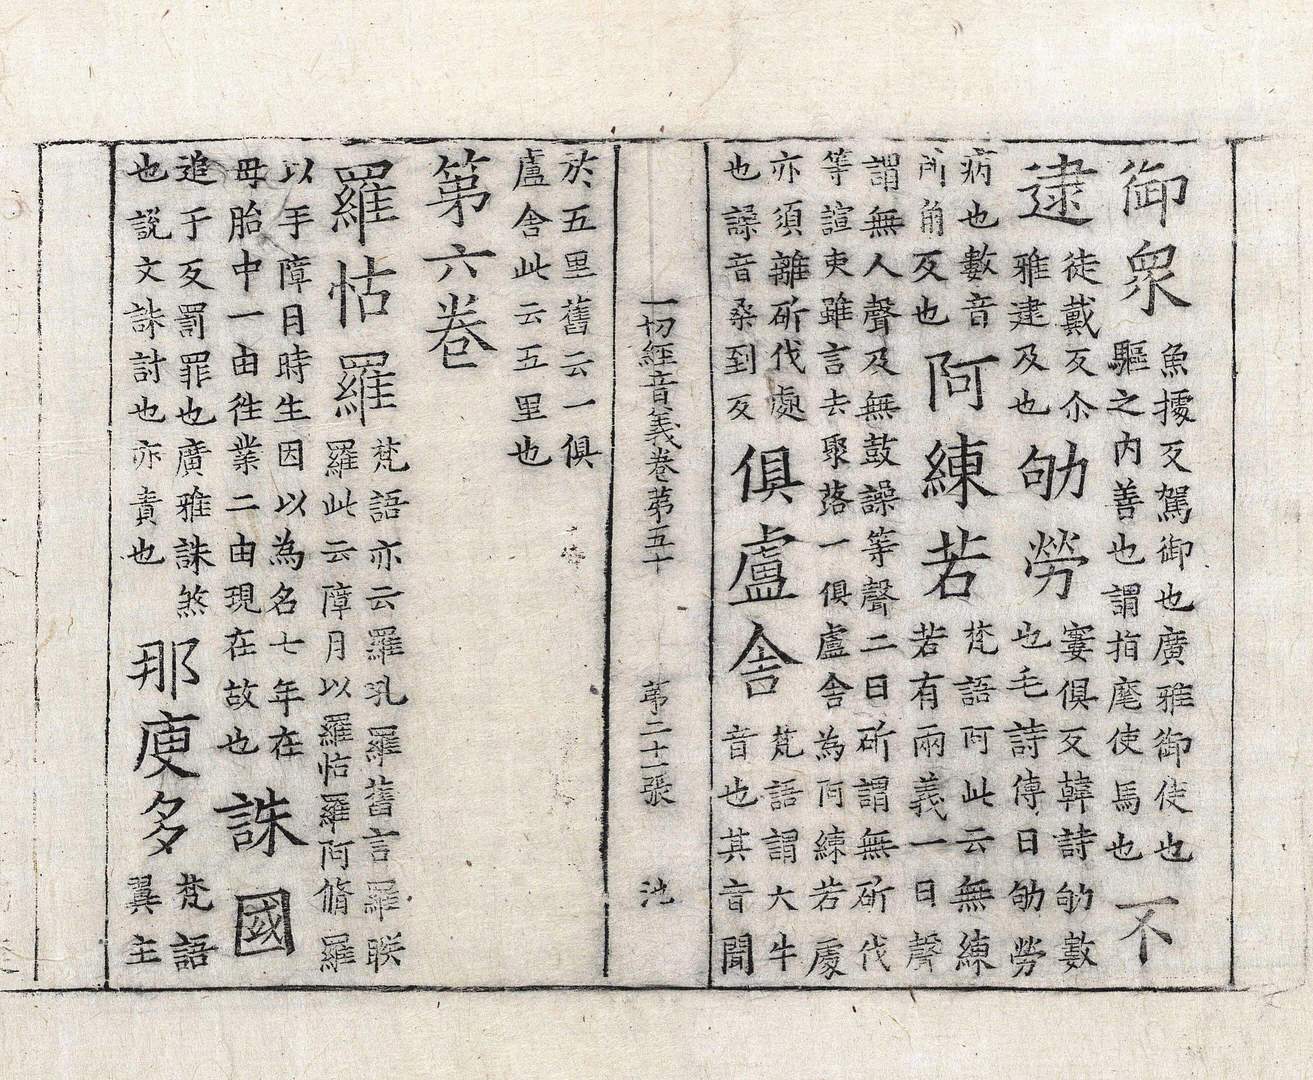 御眾魚據反駕御也廣雅御使也驅之內善也謂指麾使馬也不
逮徒戴反尒雅逮及也劬勞寠俱反韓詩劬數也毛詩傳曰劬勞
病也數音所角反也阿練若梵語阿此云無練若有兩義一曰聲
謂無人聲及無鼓譟等聲二曰斫謂無斫伐等諠吏雖言去聚落一俱盧舍為阿練若處
亦須離斫伐處也譟音桑到反俱盧舍梵語謂大牛音也其音聞
一切經音義卷第五十 第二十一張 池
於五里舊云一俱盧舍此云五里也
第六卷
羅怙羅梵語亦云羅吼羅舊言羅眹羅此云障月以羅怙羅阿脩羅
以手障日時生因以為名七年在母胎中一由往業二由現在故也誅國
追于反罰罪也廣雅誅煞也説文誅討也亦責也那庾多梵語翼主